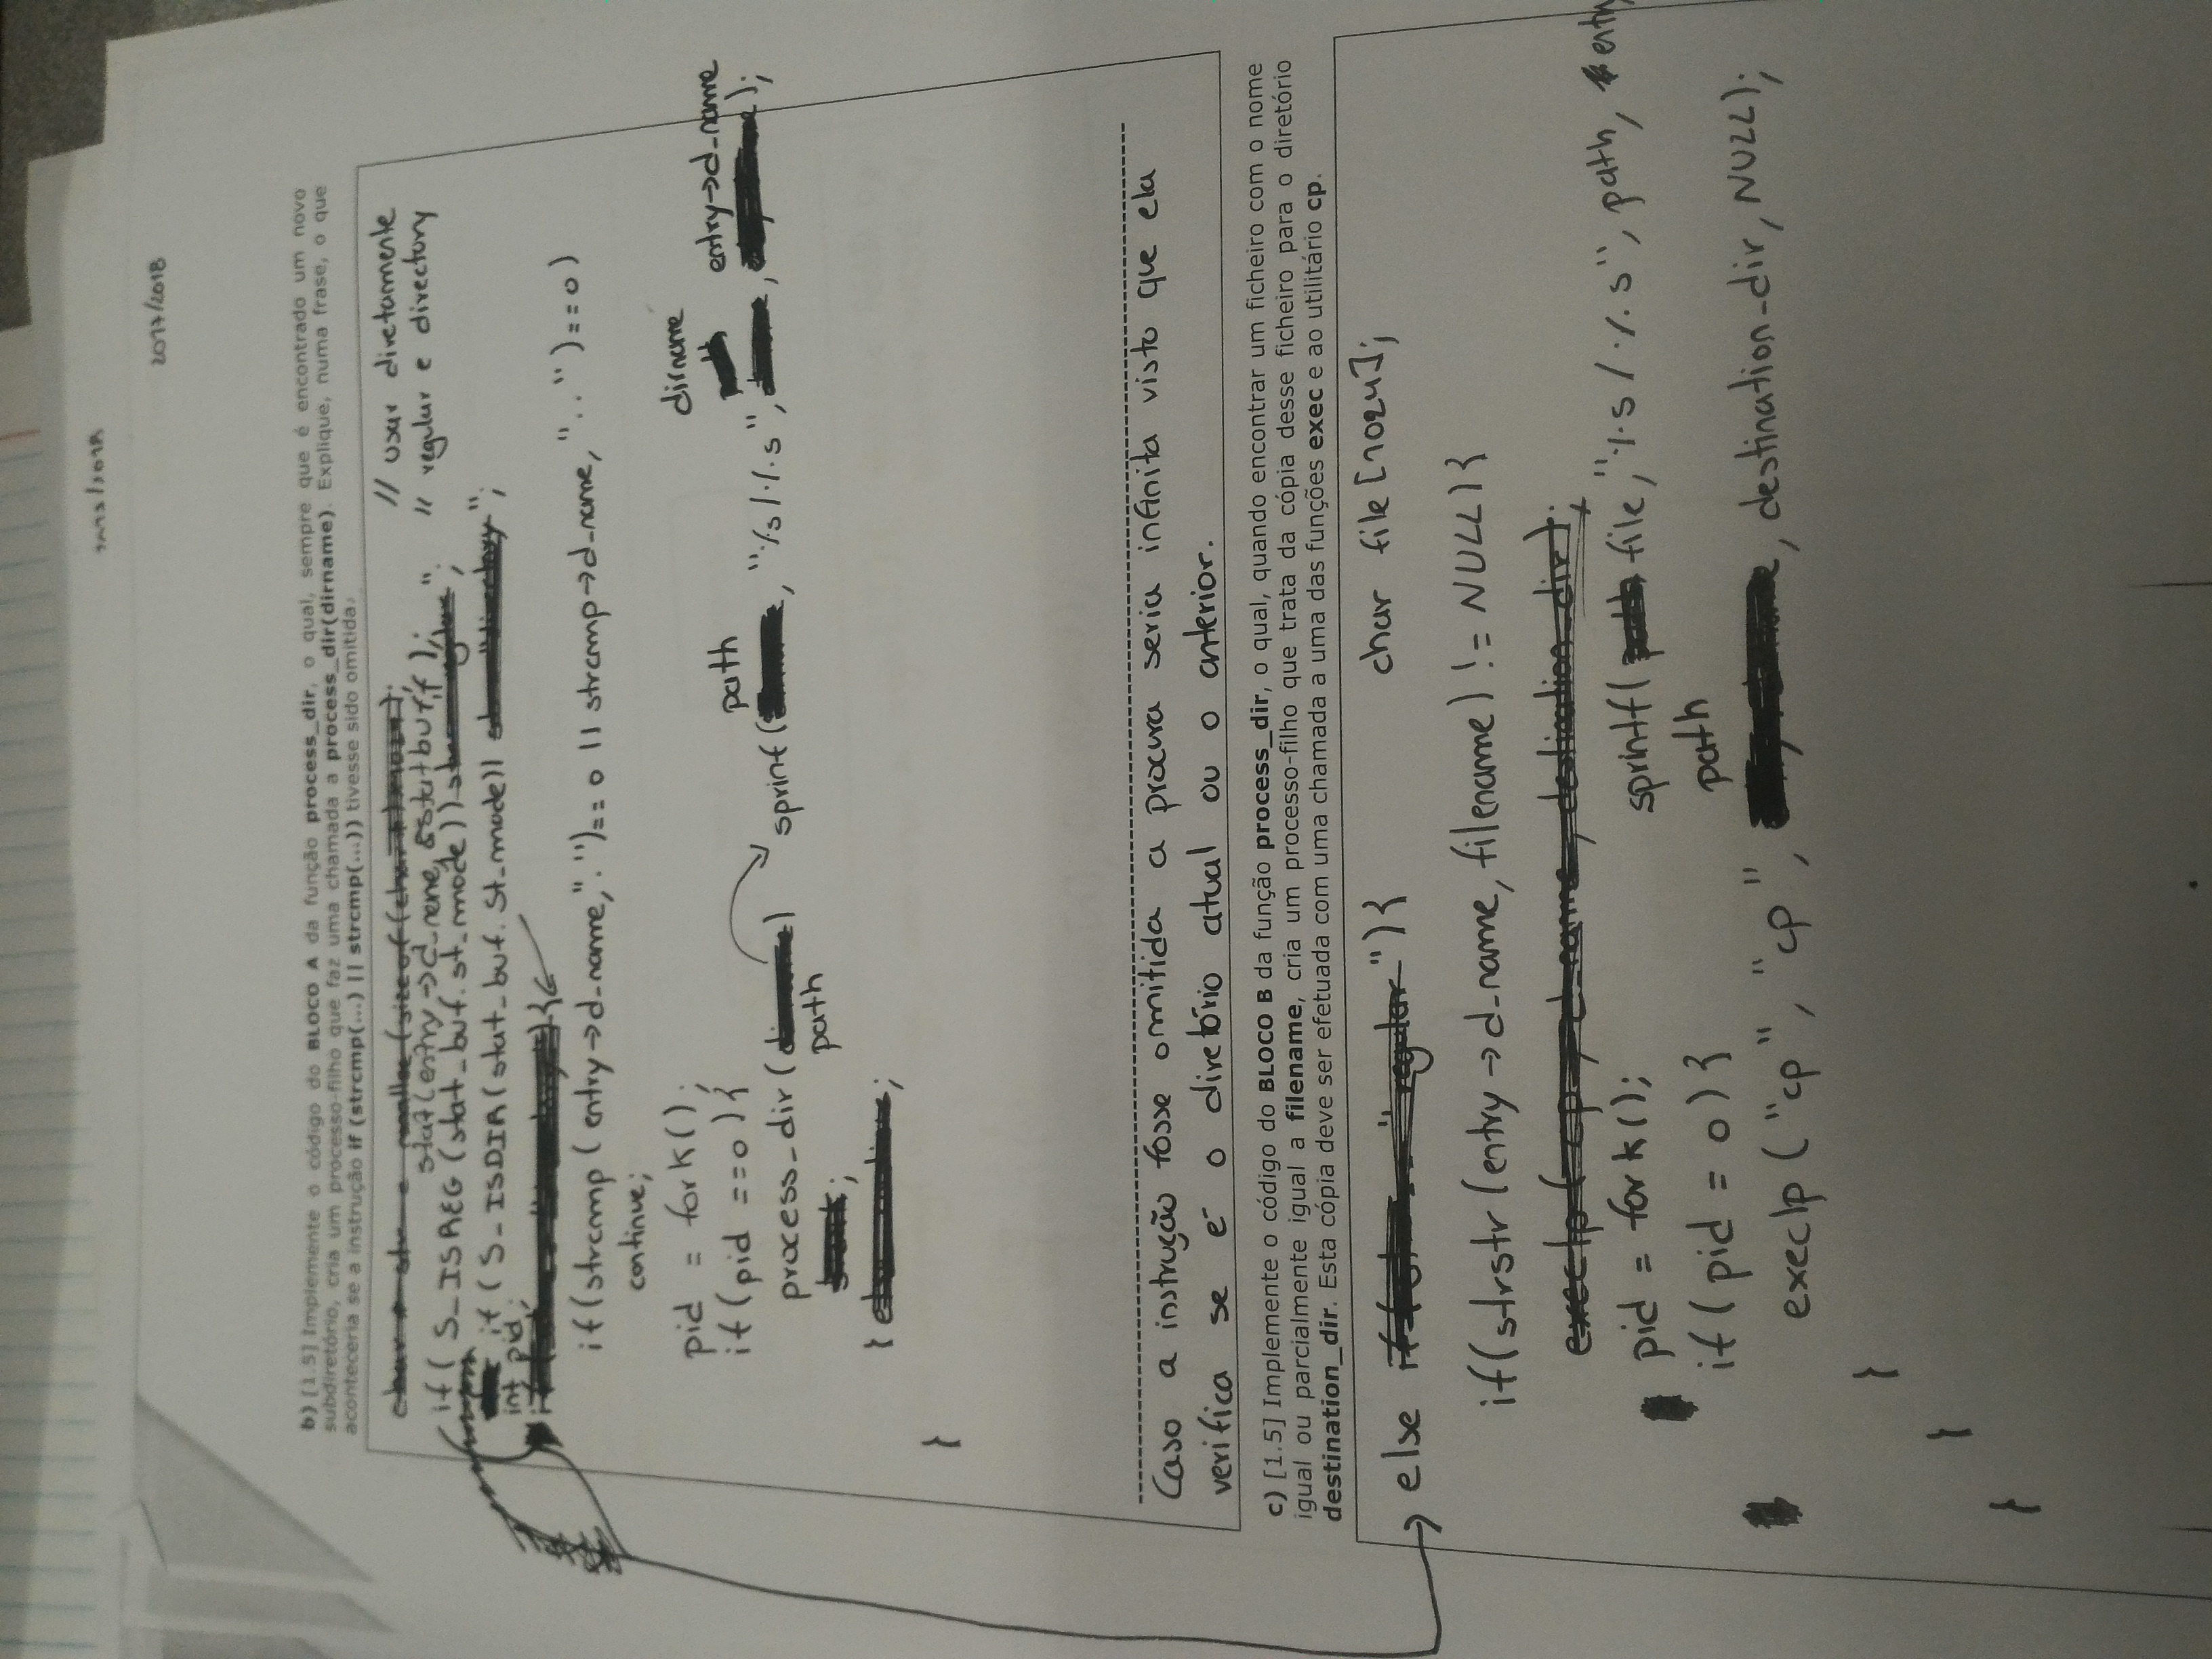 2017/2018
b) [1.5] Implemente o código do BLOCO A da função process_dir, o qual, sempre que é encontrado um novo
subdiretório, cria um processo-filho que faz uma chamada a process_dir(dirname). Explique, numa frase, o que
aconteceria se a instrução if (strcmp(...) || strcmp(...)) tivesse sido omitida.
// usar diretamente
stat(entry->d_name, &statbuf);
" regular e directory
if( S_ISREG (stat_buf.st_mode))
if ( S_ISDIR (stat_buf. st_mode))
int pid;
if(strcmp (entry->d_name, ".")==0 || strcmp->d_name, "..")==0)
continue;
pid = fork();
if(pid ==0){
path
dirname
entry->d_name
process_dir( ) sprintf( , "%s/%s", , );
path
;
} ;
}
Caso a instrução fosse omitida a procura seria infinita visto que ela
verifica se é o diretório atual ou o anterior.
c) [1.5] Implemente o código do BLOCO B da função process_dir, o qual, quando encontrar um ficheiro com o nome
igual ou parcialmente igual a filename, cria um processo-filho que trata da cópia desse ficheiro para o diretório
destination_dir. Esta cópia deve ser efetuada com uma chamada a uma das funções exec e ao utilitário cp.
char file[1024];
else "){
if(strstr(entry->d_name, filename) != NULL){
execlp(cp, d_name, destination_dir);
pid = fork(); sprintf( file, "%s/%s", path,
if(pid = 0){
path
execlp("cp", "cp", , destination_dir, NULL);
}
}
}